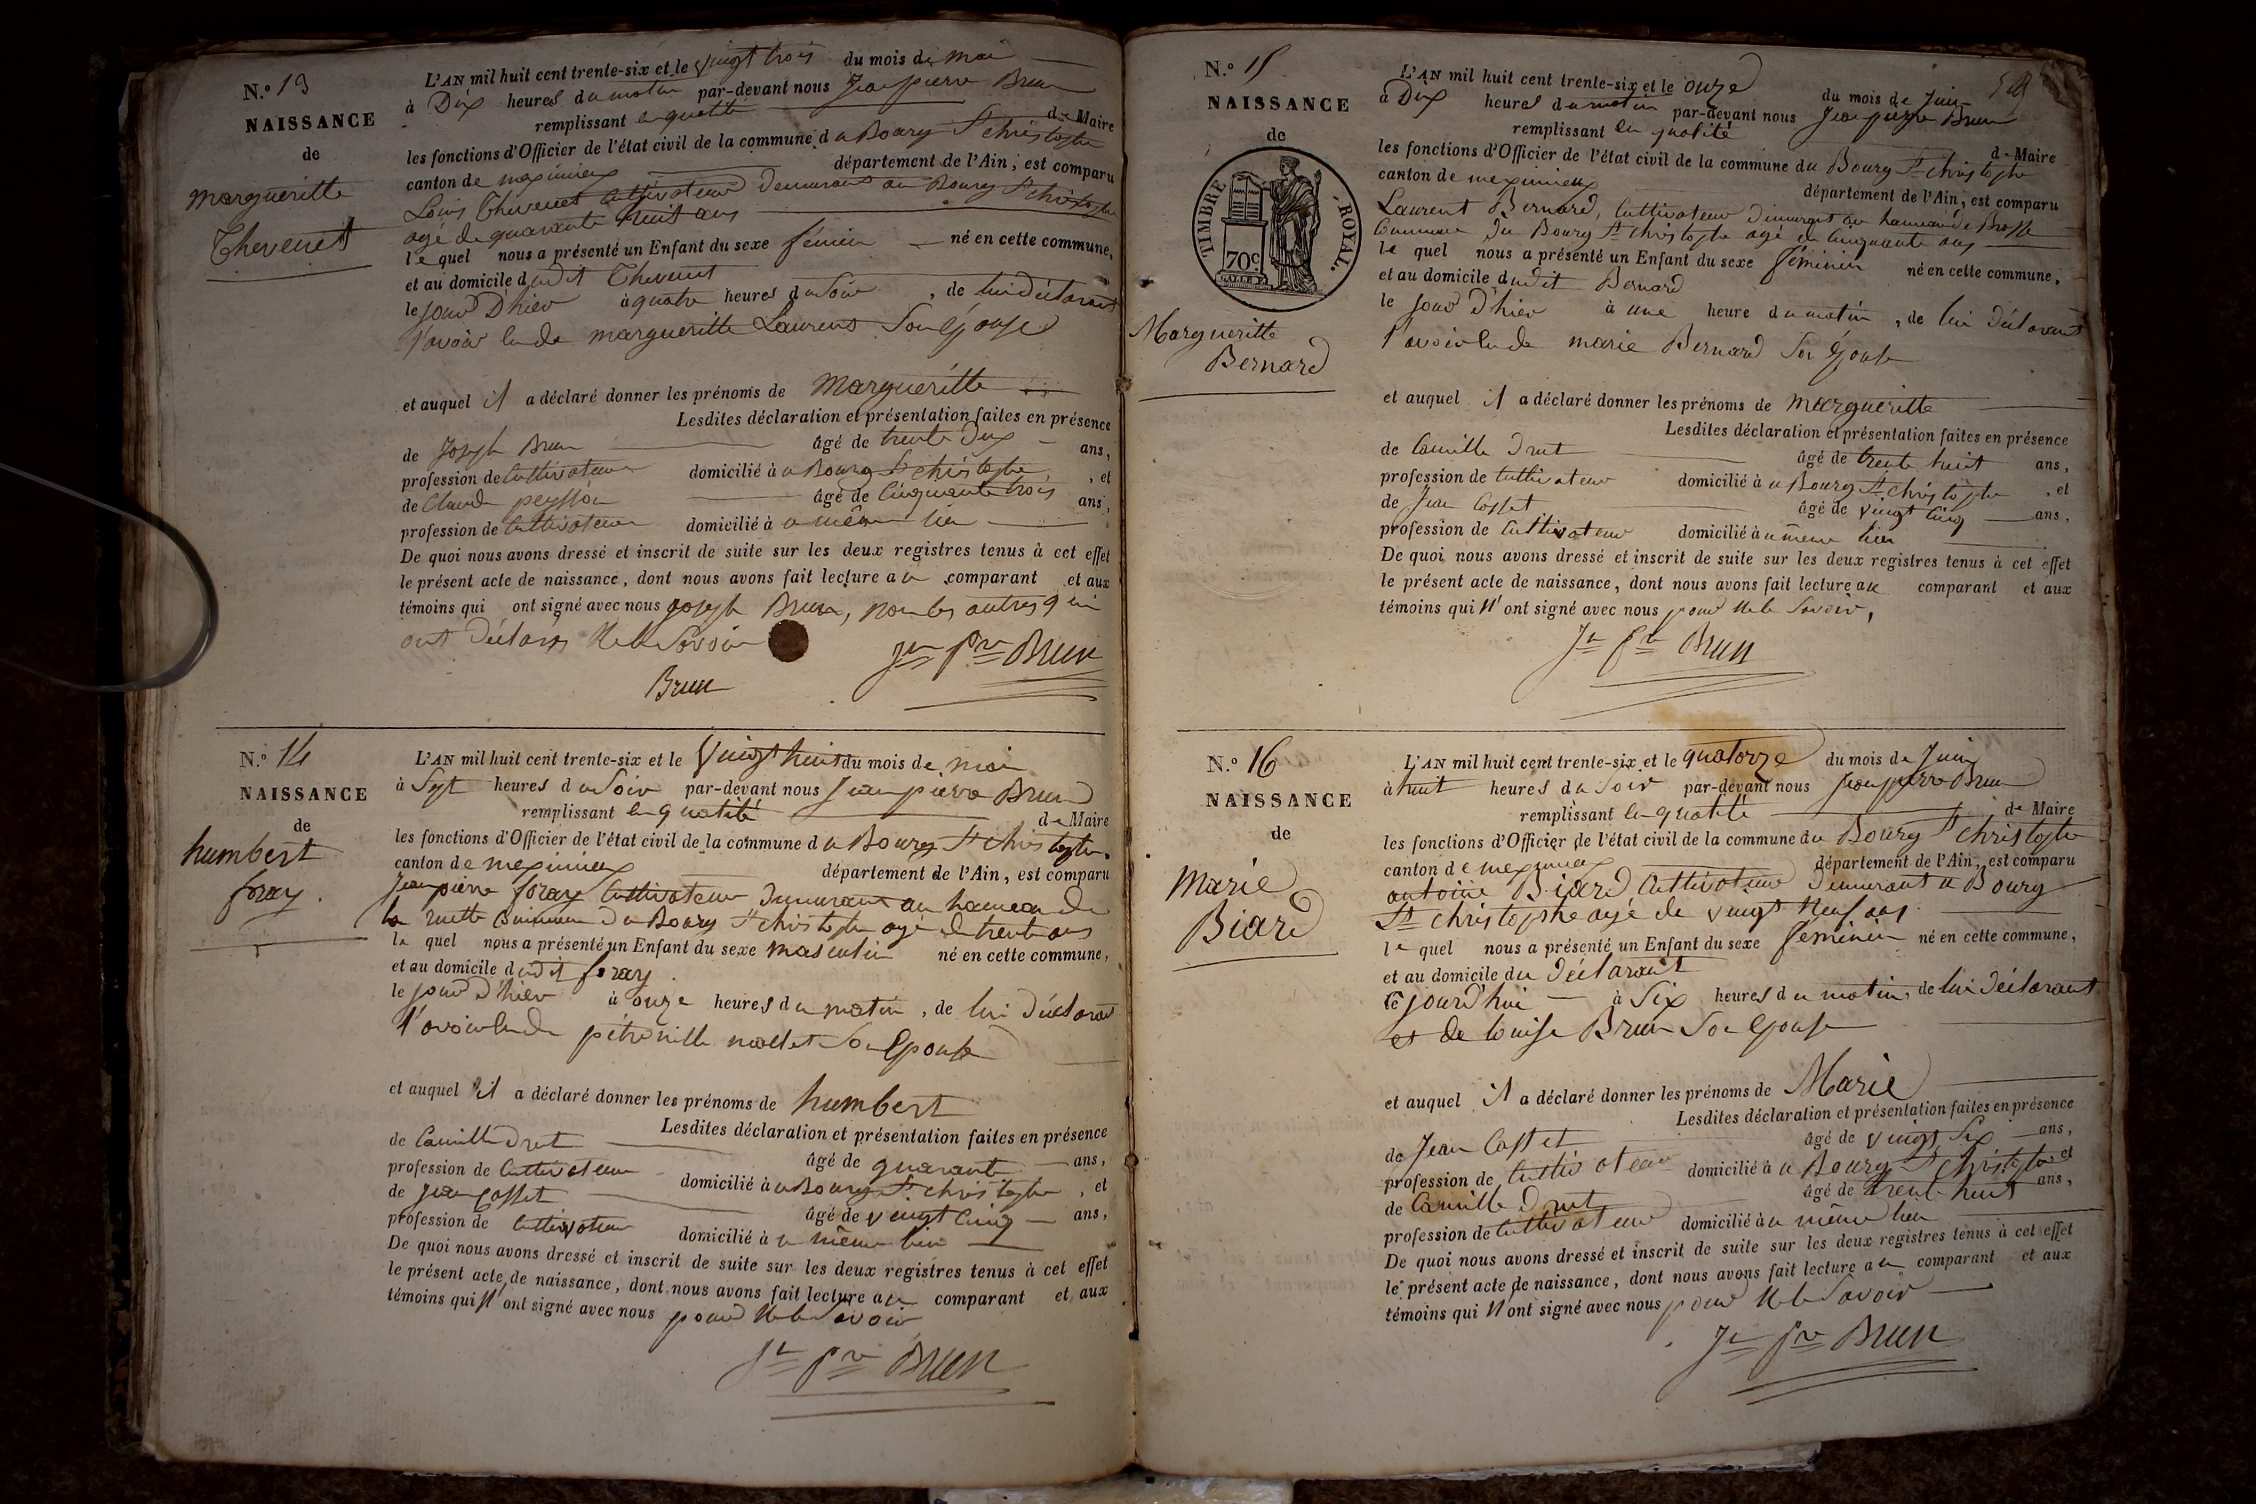 N.º 13
NAISSANCE
de
Marguéritte
Thevenet
L'AN mil huit cent trente-six et le vingt trois du mois de mai
à Dix heures du matin par-devant nous Jean pierre Brun
remplissant en qualité de Maire
les fonctions d'Officier de l'état civil de la commune du Bourg St christophe
canton de meximieux département de l'Ain, est comparu
Louis Thévenet Cultivateur Demeurant au Bourg St christophe
agé de quarante huit ans
lequel nous a présenté un Enfant du sexe féminin né en cette commune,
et au domicile dudit Thevenet
le jour D'hier à quatre heures du Soir, de lui déclarant
l'avoir eu de marguéritte Laurent Son Epouse
et auquel il a déclaré donner les prénoms de Marguéritte
Lesdites déclaration et présentation faites en présence
de Joseph Brun âgé de trente Deux ans,
profession de Cultivateur domicilié à u Bourg St christophe, et
de Claude peysson âgé de Cinquante trois ans,
profession de Cultivateur domicilié à u même lieu
De quoi nous avons dressé et inscrit de suite sur les deux registres tenus à cet effet
le présent acte de naissance, dont nous avons fait lecture au comparant et aux
témoins qui ont signé avec nous joseph Brun, non les autres qui
ont Déclarés Ne le Savoir
Jn Pre Brun
Brun
N.º 14
NAISSANCE
de
humbert
foray.
L'AN mil huit cent trente-six et le Vingt huit du mois de mai
à Sept heures du Soir par-devant nous Jean pierre Brun
remplissant en qualité de Maire
les fonctions d'Officier de l'état civil de la commune du Bourg St christophe.
canton de meximieux département de l'Ain, est comparu
Jean pierre foray Cultivateur Demeurant au hameau de
la ruette Commune du Bourg St christophe agé de trente ans
lequel nous a présenté un Enfant du sexe masculin né en cette commune,
et au domicile dudit foray.
le jour d'hier à onze heures du matin, de lui déclarant
l'avoir eu de pétronille mollet Son Epouse
et auquel il a déclaré donner les prénoms de humbert
Lesdites déclaration et présentation faites en présence
de Camille Drut âgé de quarante ans,
profession de Cultivateur domicilié à u Bourg St christophe, et
de Jean Cosset âgé de vingt Cinq ans,
profession de Cultivateur domicilié à u même lieu
De quoi nous avons dressé et inscrit de suite sur les deux registres tenus à cet effet
le présent acte de naissance, dont nous avons fait lecture au comparant et aux
témoins qui N'ont signé avec nous pour Ne le Savoir
Jn Pre Brun
N.º 15
NAISSANCE
de
TIMBRE ROYAL.
70c
Marguéritte
Bernard
L'AN mil huit cent trente-six et le onze du mois de Juin
à Dix heures du matin par-devant nous Jean pierre Brun
remplissant en qualité de Maire
les fonctions d'Officier de l'état civil de la commune du Bourg St christophe
canton de meximieux département de l'Ain, est comparu
Laurent Bernard, Cultivateur Demeurant au hameau de
Commune Du Bourg St christophe agé de Cinquante ans
lequel nous a présenté un Enfant du sexe féminin né en cette commune,
et au domicile dudit Bernard
le jour D'hier à une heure du matin, de lui Déclarant
l'avoir eu de marie Bernard Son Epouse
et auquel il a déclaré donner les prénoms de marguéritte
Lesdites déclaration et présentation faites en présence
de Camille Drut âgé de trente huit ans,
profession de Cultivateur domicilié à u Bourg St christophe, et
de Jean Cosset âgé de vingt Cinq ans,
profession de Cultivateur domicilié à u même lieu
De quoi nous avons dressé et inscrit de suite sur les deux registres tenus à cet effet
le présent acte de naissance, dont nous avons fait lecture au comparant et aux
témoins qui N'ont signé avec nous pour Ne le Savoir,
Jn Pre Brun
N.º 16
NAISSANCE
de
Marie
Biard
L'AN mil huit cent trente-six et le quatorze du mois de Juin
à huit heures du Soir par-devant nous Jean pierre Brun
remplissant en qualité de Maire
les fonctions d'Officier de l'état civil de la commune du Bourg St christophe
canton de meximieux département de l'Ain, est comparu
antoine Biard Cultivateur Demeurant u Bourg
St christophe agé de vingt Neuf ans
lequel nous a présenté un Enfant du sexe féminin né en cette commune,
et au domicile du Déclarant
ce jourd'hui à Six heures du matin, de lui Déclarant
et de louise Brun Son Epouse
et auquel il a déclaré donner les prénoms de Marie
Lesdites déclaration et présentation faites en présence
de Jean Cosset âgé de vingt Six ans,
profession de Cultivateur domicilié à u Bourg St christophe et
de Camille Drut âgé de trente huit ans,
profession de Cultivateur domicilié à u même lieu
De quoi nous avons dressé et inscrit de suite sur les deux registres tenus à cet effet
le présent acte de naissance, dont nous avons fait lecture au comparant et aux
témoins qui N'ont signé avec nous pour Ne le Savoir
Jn Pre Brun